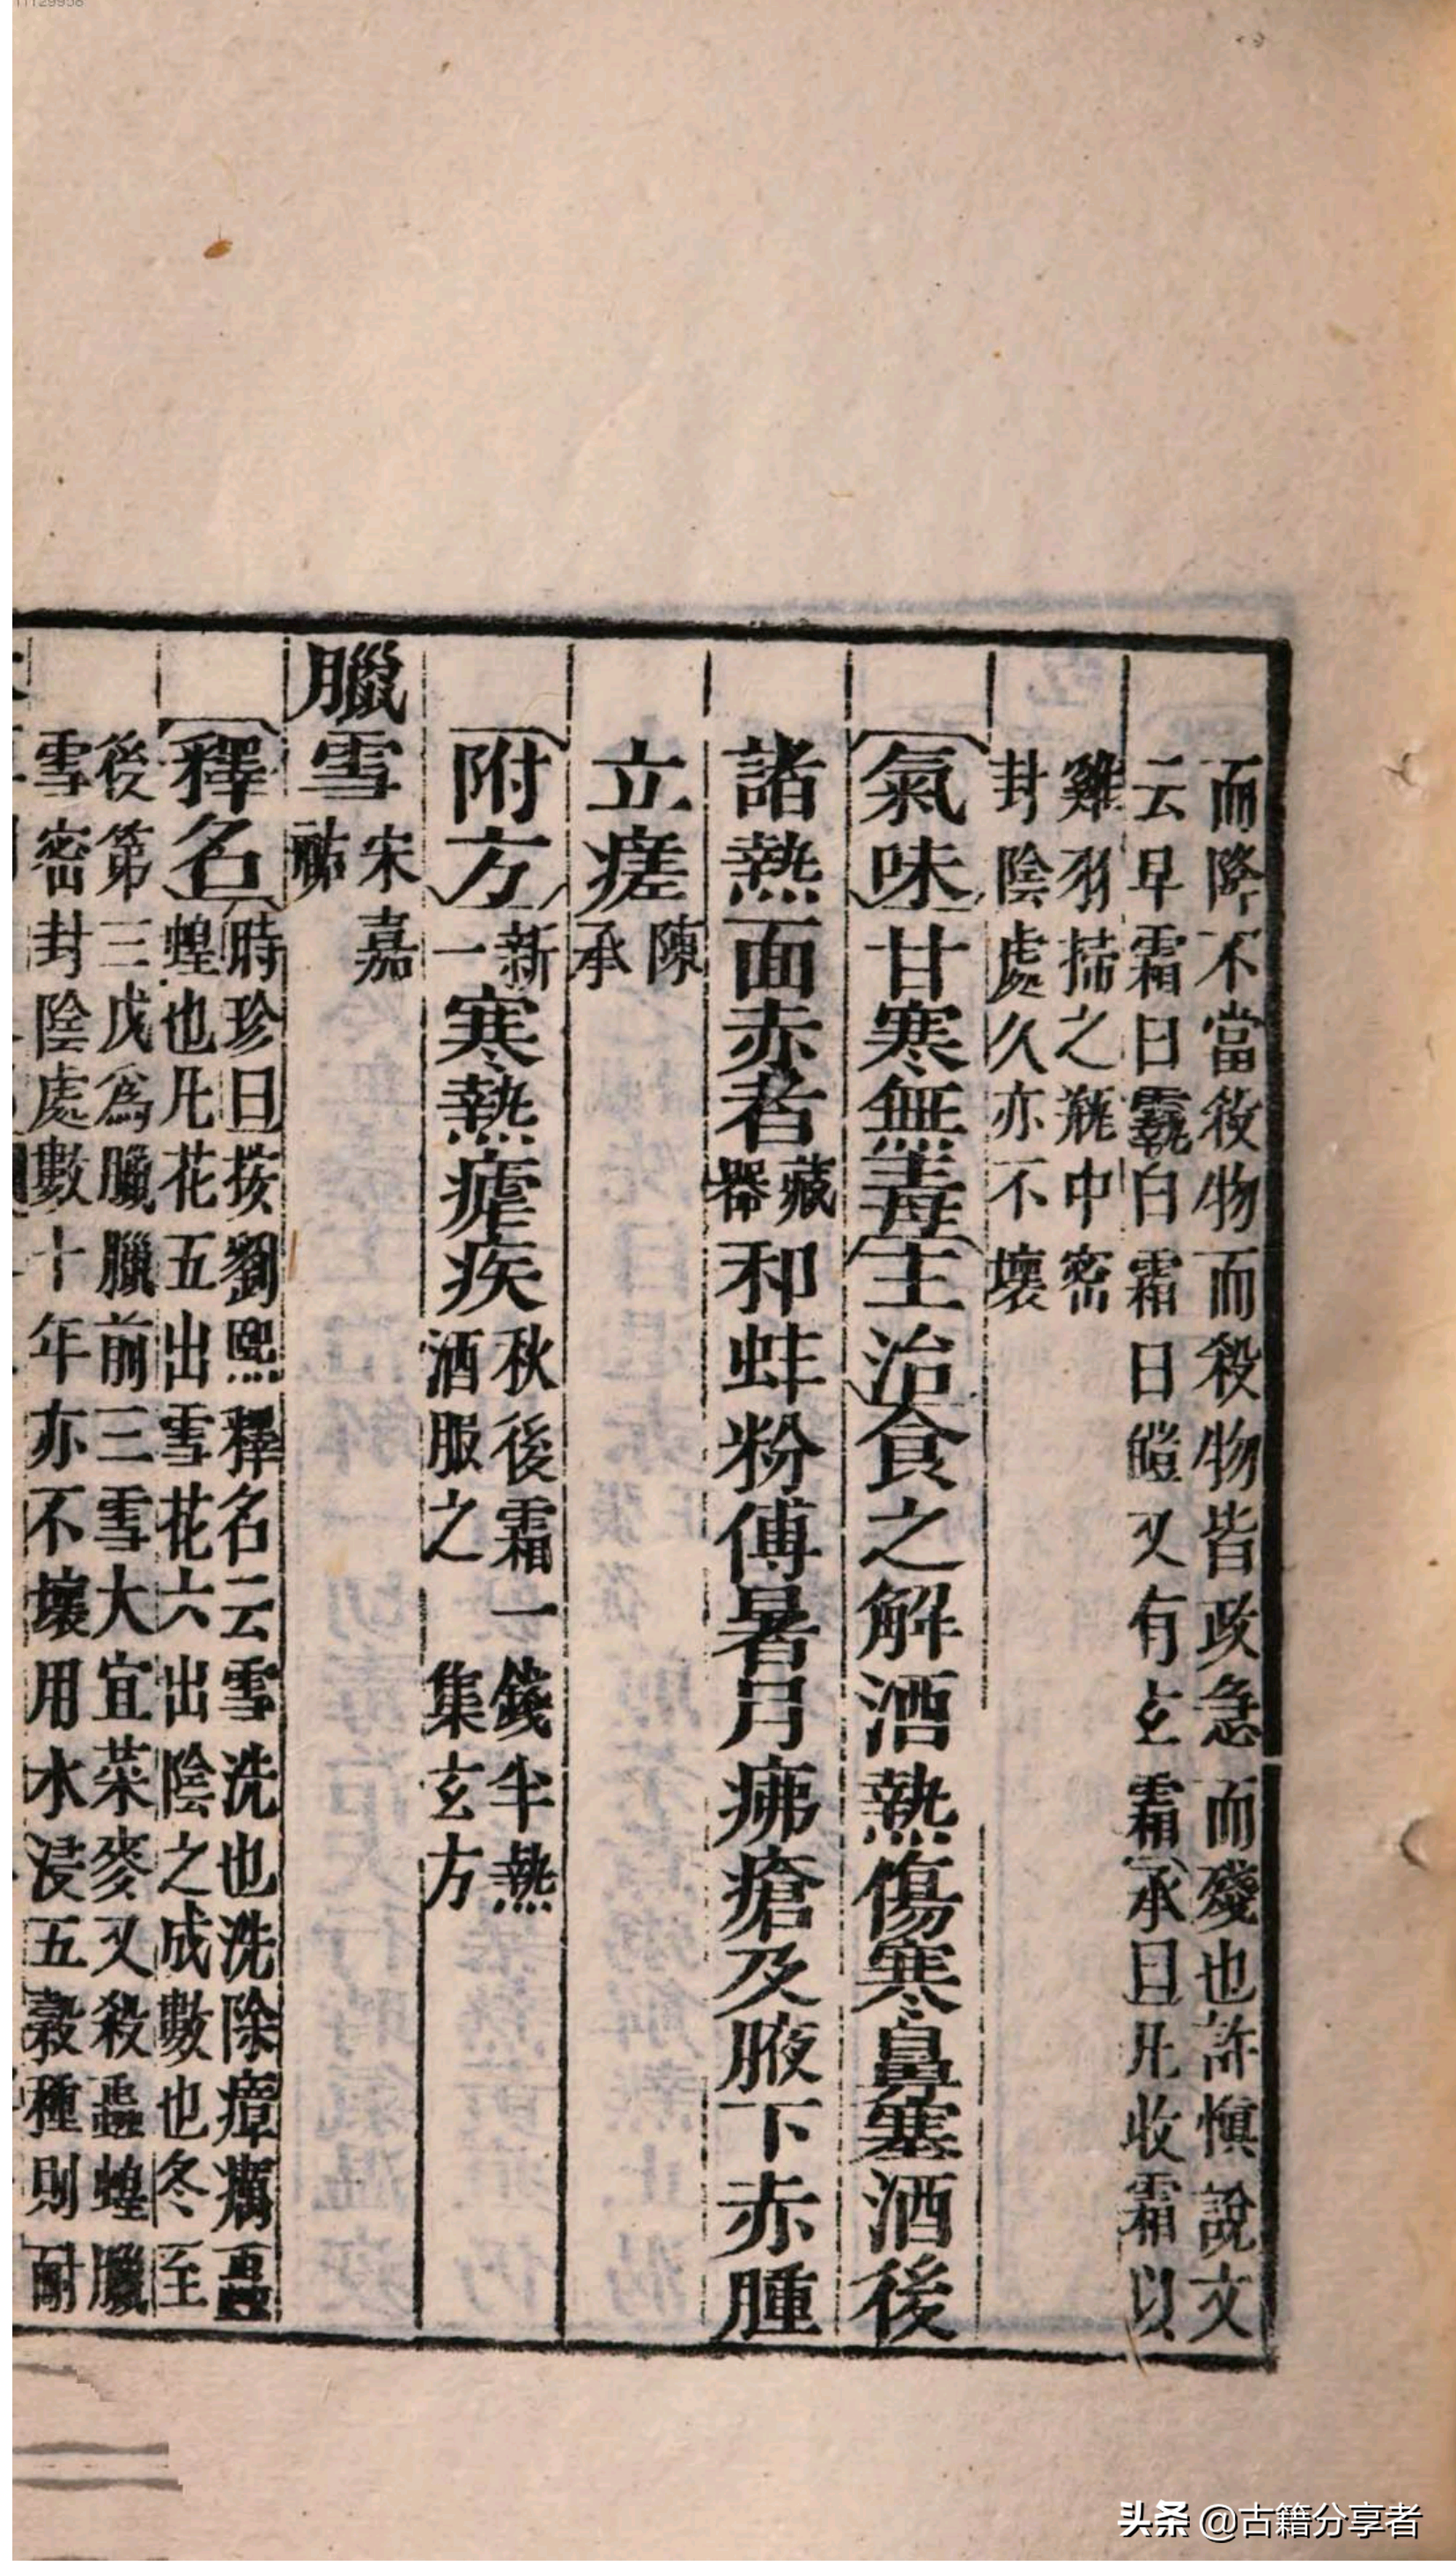 而降不當殺物而殺物皆政急而殘也許慎說文
云早霜曰䨴白霜曰皚又有玄霜承曰凡收霜以
雞羽掃之瓶中密
封陰處久亦不壞
氣味甘寒無毒主治食之解酒熱傷寒鼻塞酒後
諸熱面赤者藏器和蚌粉傅暑月疿瘡及腋下赤腫
立瘥陳承
附方新一寒熱瘧疾秋後霜一錢半熱酒服之 集玄方
臘雪宋嘉祐
釋名時珍曰按劉熙釋名云雪洗也洗除瘴癘蟲
蝗也凡花五出雪花六出陰之成數也冬至
後第三戊為臘臘前三雪大宜菜麥又殺蟲蝗臘
雪密封陰處數十年亦不壞用水浸五穀種則耐
头条 @古籍分享者